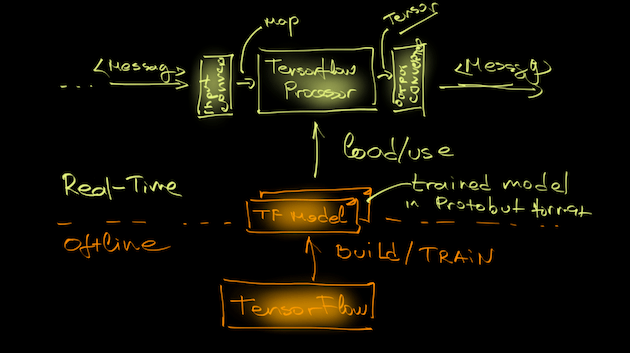 Map
Tensor
<Message>
Input
Converter
Tensorflow
Processor
Output
Converter
<Messg>
load/use
Real-Time
trained model
in Protobut format
TF Model
Offline
BUILD/TRAIN
TensorFlow